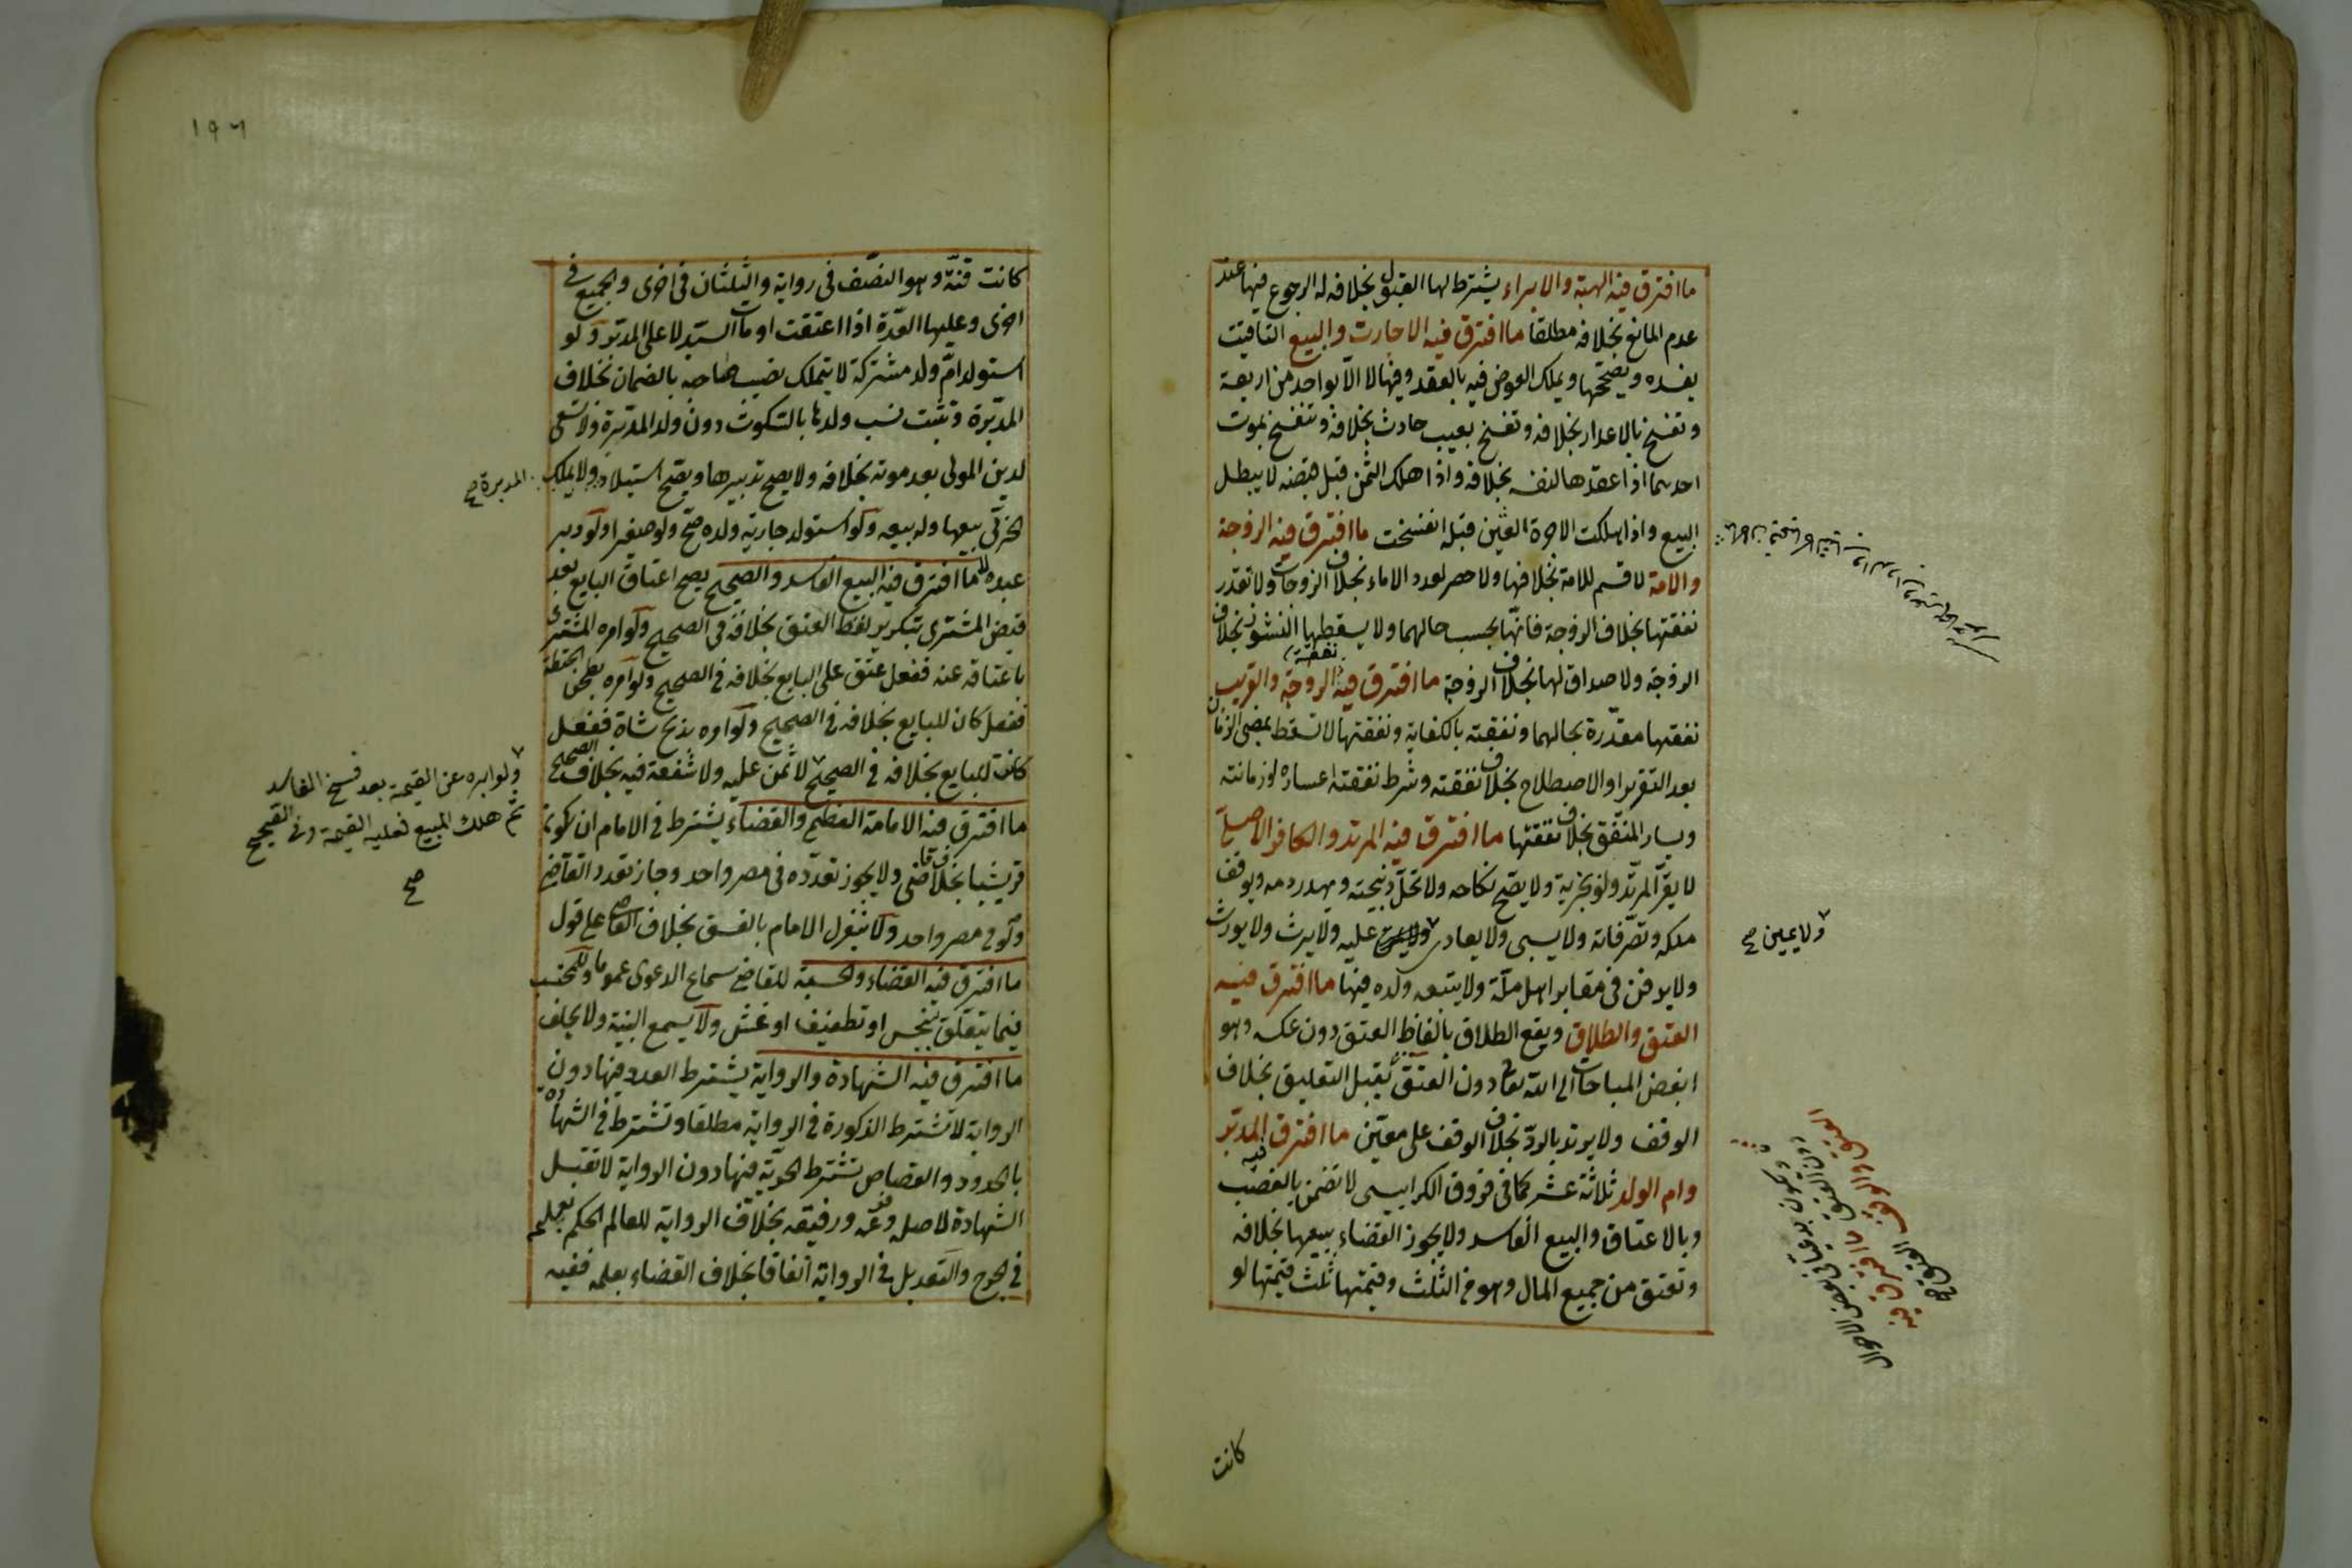 ما افترق فيه الهبة والابراء يشترط لها القبول بخلافه له الرجوع فيها عند
عدم المانع بخلافه مطلقا ما افترق فيه الاجارت والبيع التاقيت
يفسده ويصححها ويملك العوض فيه بالعقد وفيها لا الا بواحد من اربعة
وتفسخ بالاعذار بخلافه وتفسخ بعيب حادث بخلافه وتنفسخ بموت
احدهما اذا عقدها لنفسه بخلافه واذا هلك الثمن قبل قبضه لا يبطل
البيع واذا هلكت الاجرة العين قبله انفسخت ما افترق فيه الزوجة
والامة لا قسم للامة بخلافها ولا حصر لعدد الاماء بخلاف الزوجات ولا تقدر
نفقتها بخلاف الزوجة فانها بحسب حالهما ولا يسقطها النشوز بخلاف
الزوجة ولا صداق لها بخلاف الزوجة ما افترق فيه نفقة الزوجة والقريب
نفقتها مقدرة بحالهما ونفقته بالكفاية ونفقتها لا تسقط بمضى الزمان
بعد التقرير او الاصطلاح بخلاف نفقته وشرط نفقته اعساره وزمانته
ويسار المنفق بخلاف نفقتها ما افترق فيه المرتد والكافر الاصلى
لا يقر المرتد ولو بجزية ولا يصح نكاحه ولا تحل ذبيحته ويهدر دمه ويوقف
ملكه وتصرفاته ولا يسبى ولا يفادى عليه ولا يرث ولا يورث
ولا يمين صح
ولا يدفن فى مقابر اهل ملة ولا يتبعه ولده فيها ما افترق فيه
العتق والطلاق ويقع الطلاق بالفاظ العتق دون عكسه وهو
ابغض المباحات الى الله تعالى دون العتق يقبل التعليق بخلاف
دون العتق
ما افترق فيه العتق والوقف العتق صح
الوقف ولا يرتد بالرد بخلاف الوقف على معين ما افترق فيه المدبر
وام الولد ثلاثة عشر كما فى فروق الكرابيسى لا تضمن بالغصب
وبالاعتاق والبيع الفاسد ولا يجوز القضاء ببيعها بخلافه
وتعتق من جميع المال وهو فى الثلث وقيمتها ثلث قيمتها لو
كانت
١٩٦
كانت قنة وهو النصف فى رواية والثلثان فى اخرى والجميع فى
اخرى وعليها العدة اذا اعتقت او مات السيد لا على المدبر ولو
استولد ام ولد مشتركة لا يتملك نصيب صاحبه بالضمان بخلاف
المدبرة وتثبت نسب ولدها بالسكوت دون ولد المدبرة ولا تسعى
لدين المولى بعد موته بخلافه ولا يصح تدبيرها ويصح استيلاد ولا يملك
المدبرة صح
الحربى بيعها وله بيعه ولو استولد جارية ولده صح ولو صغيرا ولو دبر
عبده لا ما افترق فيه البيع الفاسد والصحيح يصح اعتاق البايع بعد
قبض المشترى بتكرير لفظ العتق بخلافه فى الصحيح ولو امره المشترى
باعتاقه عنه ففعل عتق على البايع بخلافه فى الصحيح ولو امره بطحن الحنطة
ففعل كان للبايع بخلافه فى الصحيح ولو امره بذبح شاة ففعل
كانت للبايع بخلافه فى الصحيح لا ثمن عليه ولا شفعة فيه بخلاف الصحيح
ولو ابره عن القيمة بعد فسخ الفاسد
ثم هلك المبيع فعليه القيمة وفى الصحيح
صح
ما افترق فيه الامامة العظمى والقضاء يشترط فى الامام ان يكون
قريشيا بخلاف القاضى ولا يجوز تعدده فى مصر واحد وجاز تعدد القاضى
ولو فى مصر واحد ولا ينعزل الامام بالفسق بخلاف القاضى على قول
ما افترق فيه القضاء والحسبة للقاضى سماع الدعوى عموما وللمحتسب
فيما يتعلق ببخس او تطفيف او غش ولا يسمع البينة ولا يحلف
ما افترق فيه الشهادة والرواية يشترط العدد فيها دون
الرواية لا تشترط الذكورة فى الرواية مطلقا وتشترط فى الشهادة
بالحدود والقصاص تشترط الحرية فيها دون الرواية لا تقبل
الشهادة لاصله وفرعه ورقيقه بخلاف الرواية للعالم الحكم بعلمه
فى الجرح والتعديل فى الرواية اتفاقا بخلاف القضاء بعلمه ففيه